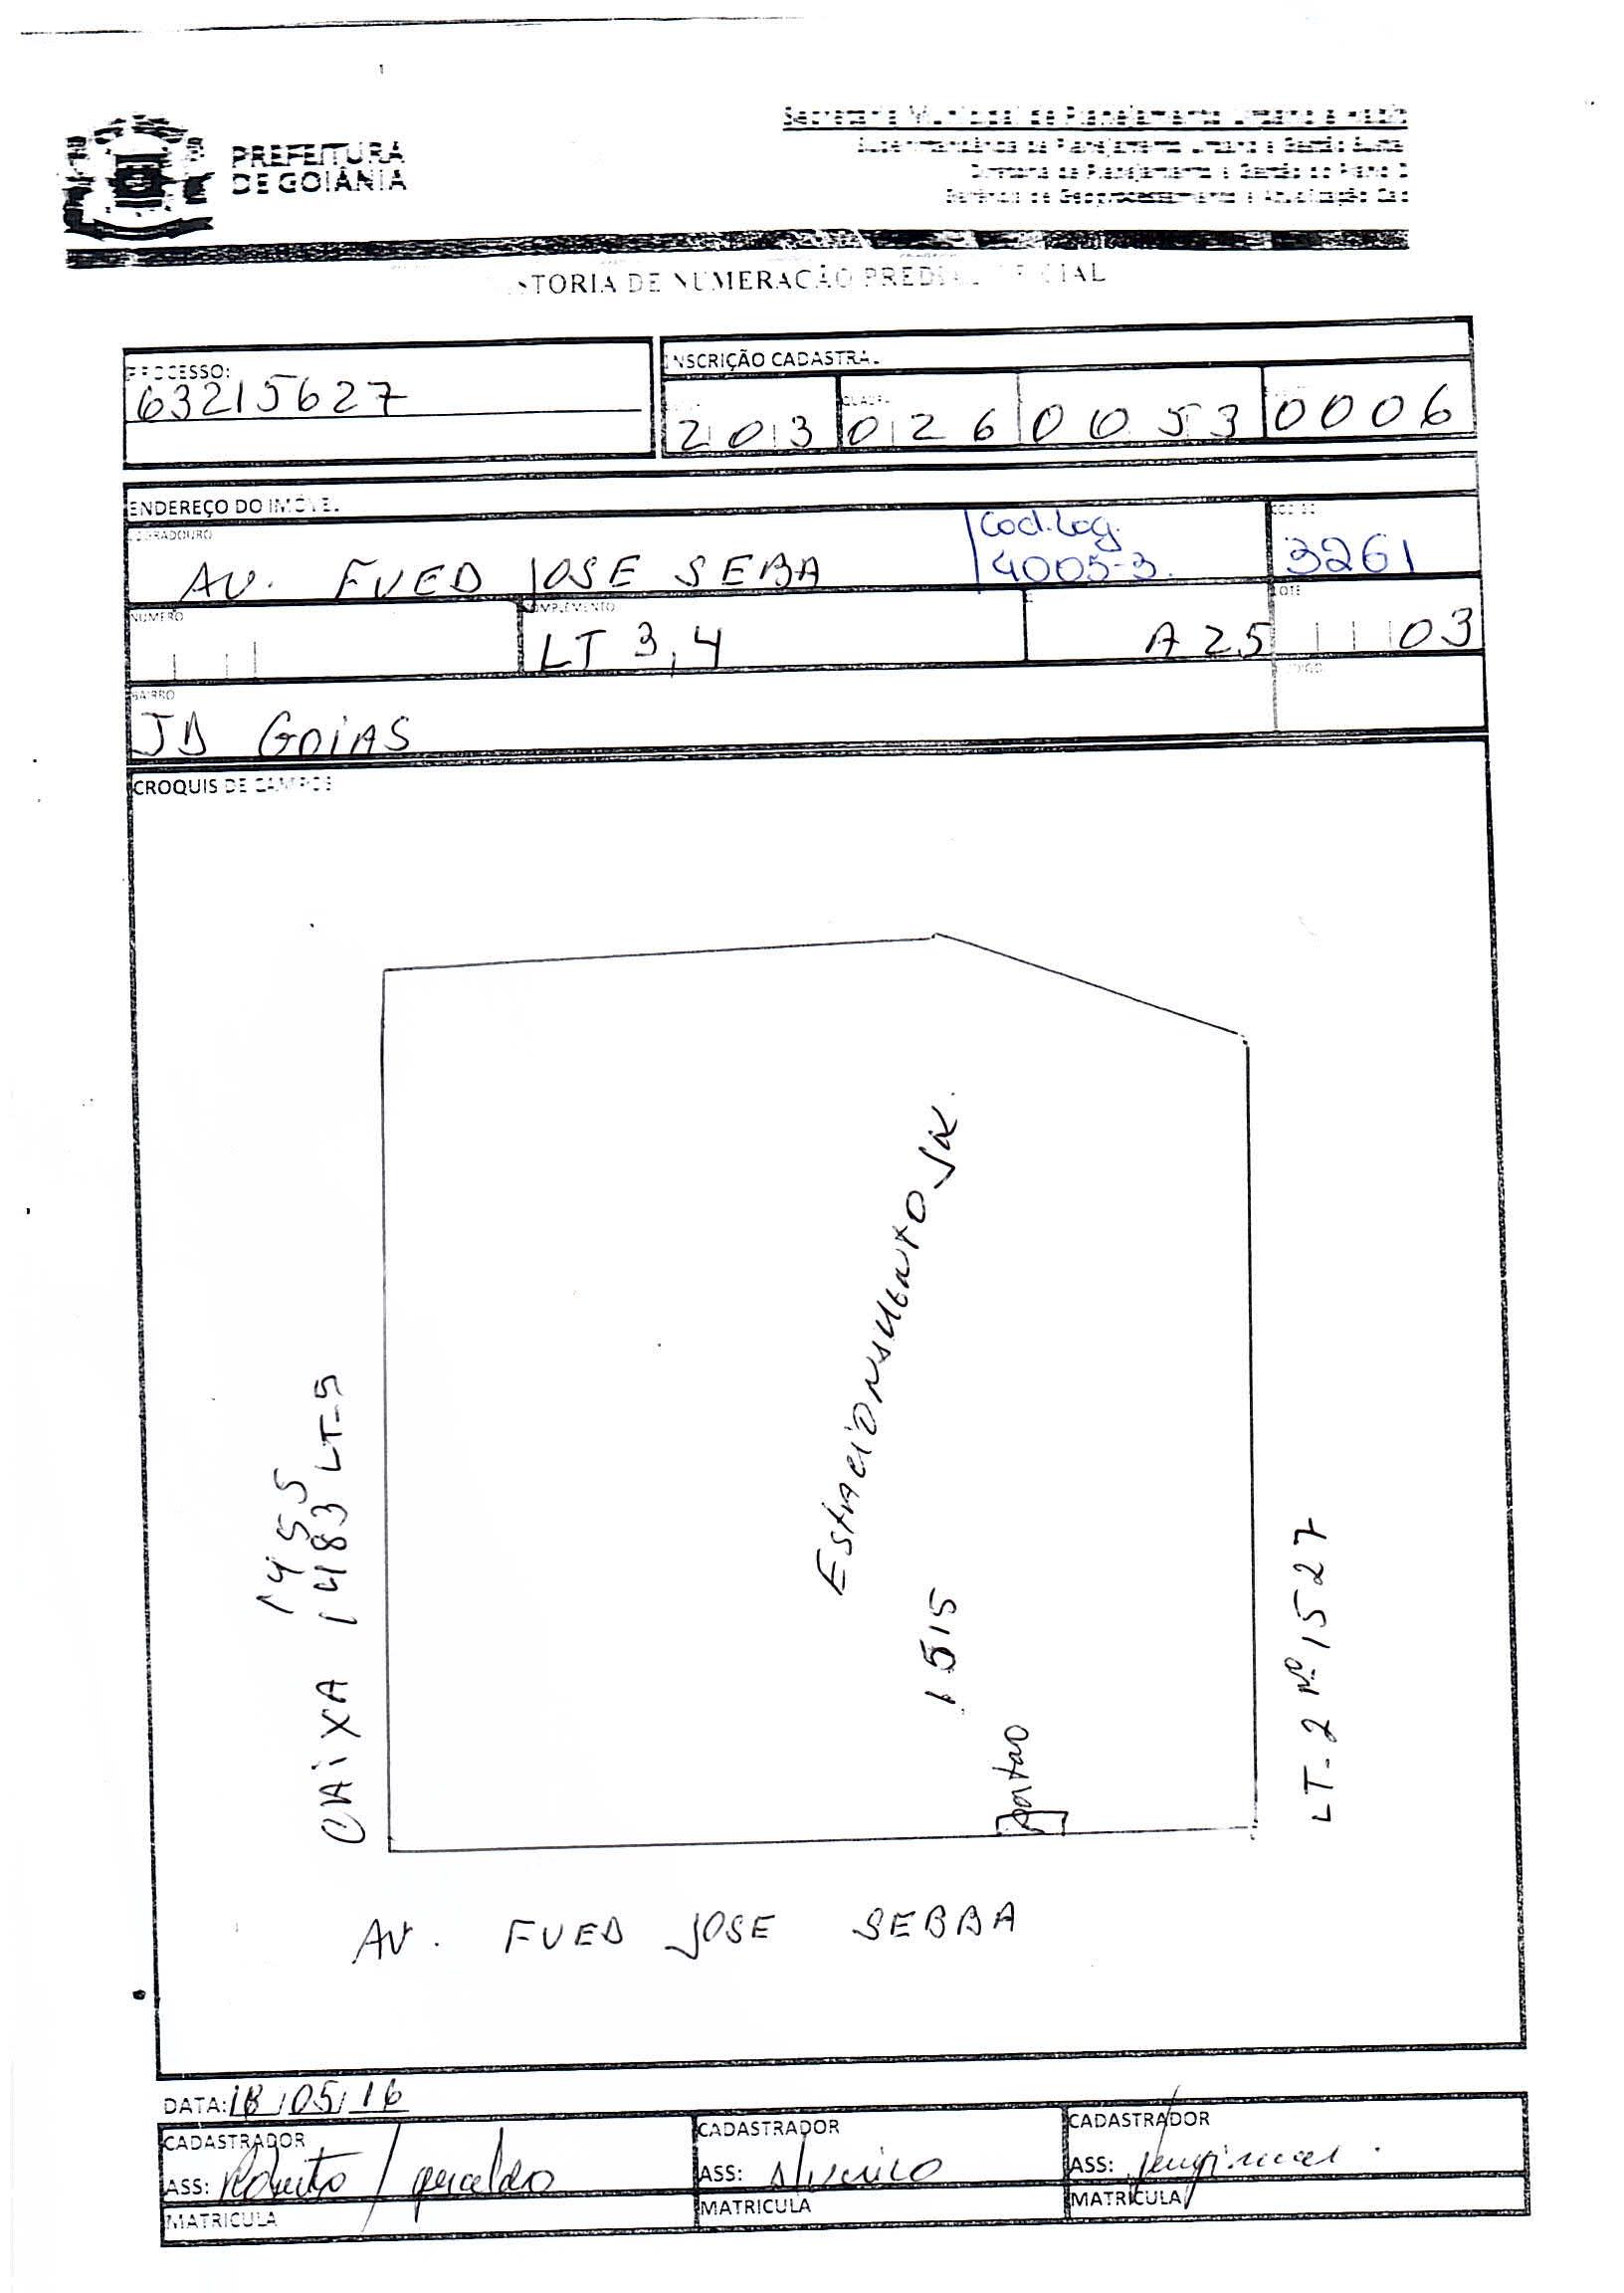 PREFEITURA
DE GOIÂNIA
Secretaria Municipal de Planejamento Urbano e
Superintendência de Planejamento Urbano e Gestão
Diretoria de Planejamento e Gestão do Plano D
Gerência de Geoprocessamento e Atualização Cad
STORIA DE NUMERAÇÃO PREDIAL OFICIAL
PROCESSO:
63215627
INSCRIÇÃO CADASTRAL
203 026 0053 0006
ENDEREÇO DO IMÓVEL
LOGRADOURO
AV. FUED JOSE SEBA
Cod.Log.
4005-3.
CÓDIGO
3261
NÚMERO
COMPLEMENTO
LT 3,4
A 25
LOTE
03
BAIRRO
JD GOIAS
CÓDIGO
CROQUIS DE CAMPOS
1455
CAIXA 1483 LT-5
1515
portao
LT-2 Nº 1527
AV. FUED JOSE SEBBA
DATA: 18/05/16
CADASTRADOR
ASS: Roberto / geraldo
MATRICULA
CADASTRADOR
ASS:
MATRICULA
CADASTRADOR
ASS:
MATRICULA